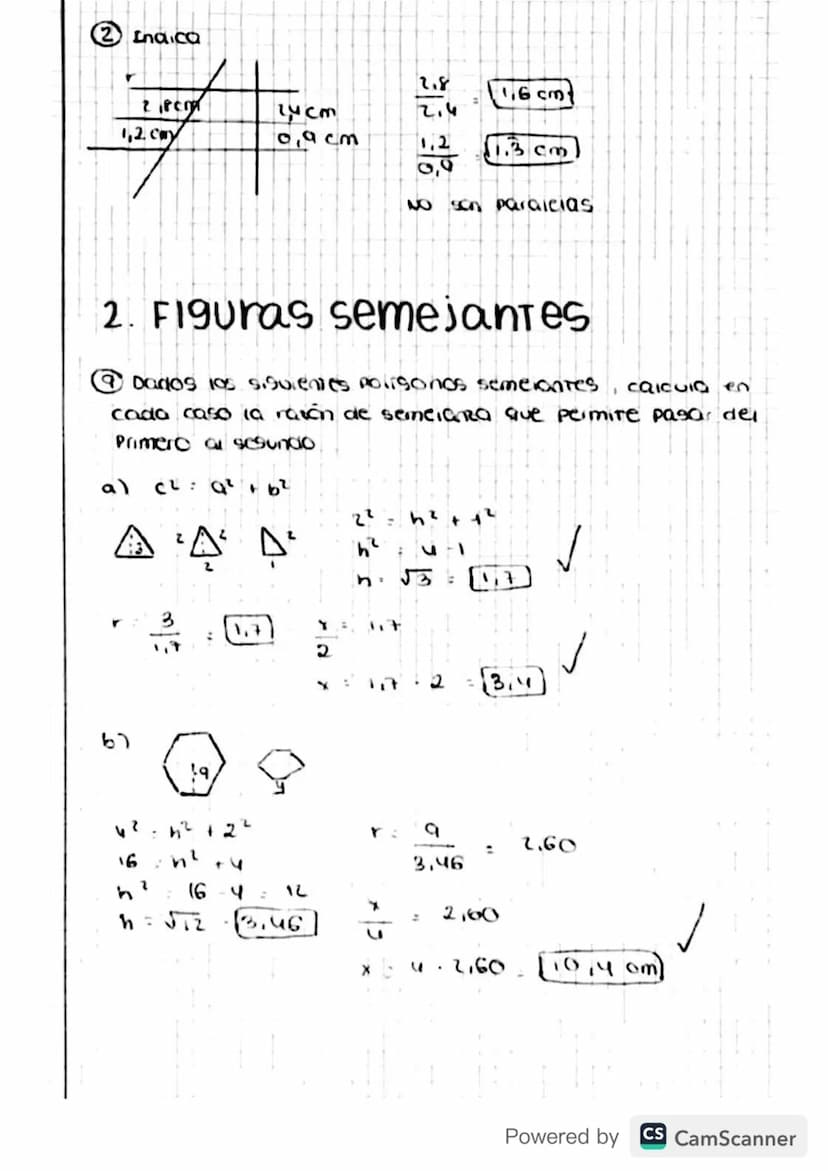 ② Indica
r
2,8cm
2,4cm
1,2 cm
0,9 cm
2,8
2,4
= 1,6 cm
1,2
0,9
1,3 cm
NO son paralelas
2. Figuras semejantes
⑨ Dados los siguientes polígonos semejantes, calcula en
cada caso la razón de semejanza que permite pasar del
primero al segundo
a) c² = a² + b²
3
2
2
2
2
1
2² = h² + 1²
h² = 4 - 1
h = √3 = 1,7
r =
3
1,7
= 1,7
x
2
= 1,7
x = 1,7 · 2 = 3,4
b)
9
4
4² = h² + 2²
16 = h² + 4
h² = 16 - 4 = 12
h = √12 = 3,46
r =
9
3,46
= 2,60
x
4
= 2,60
x = 4 · 2,60 = 10,4 cm
Powered by CS CamScanner